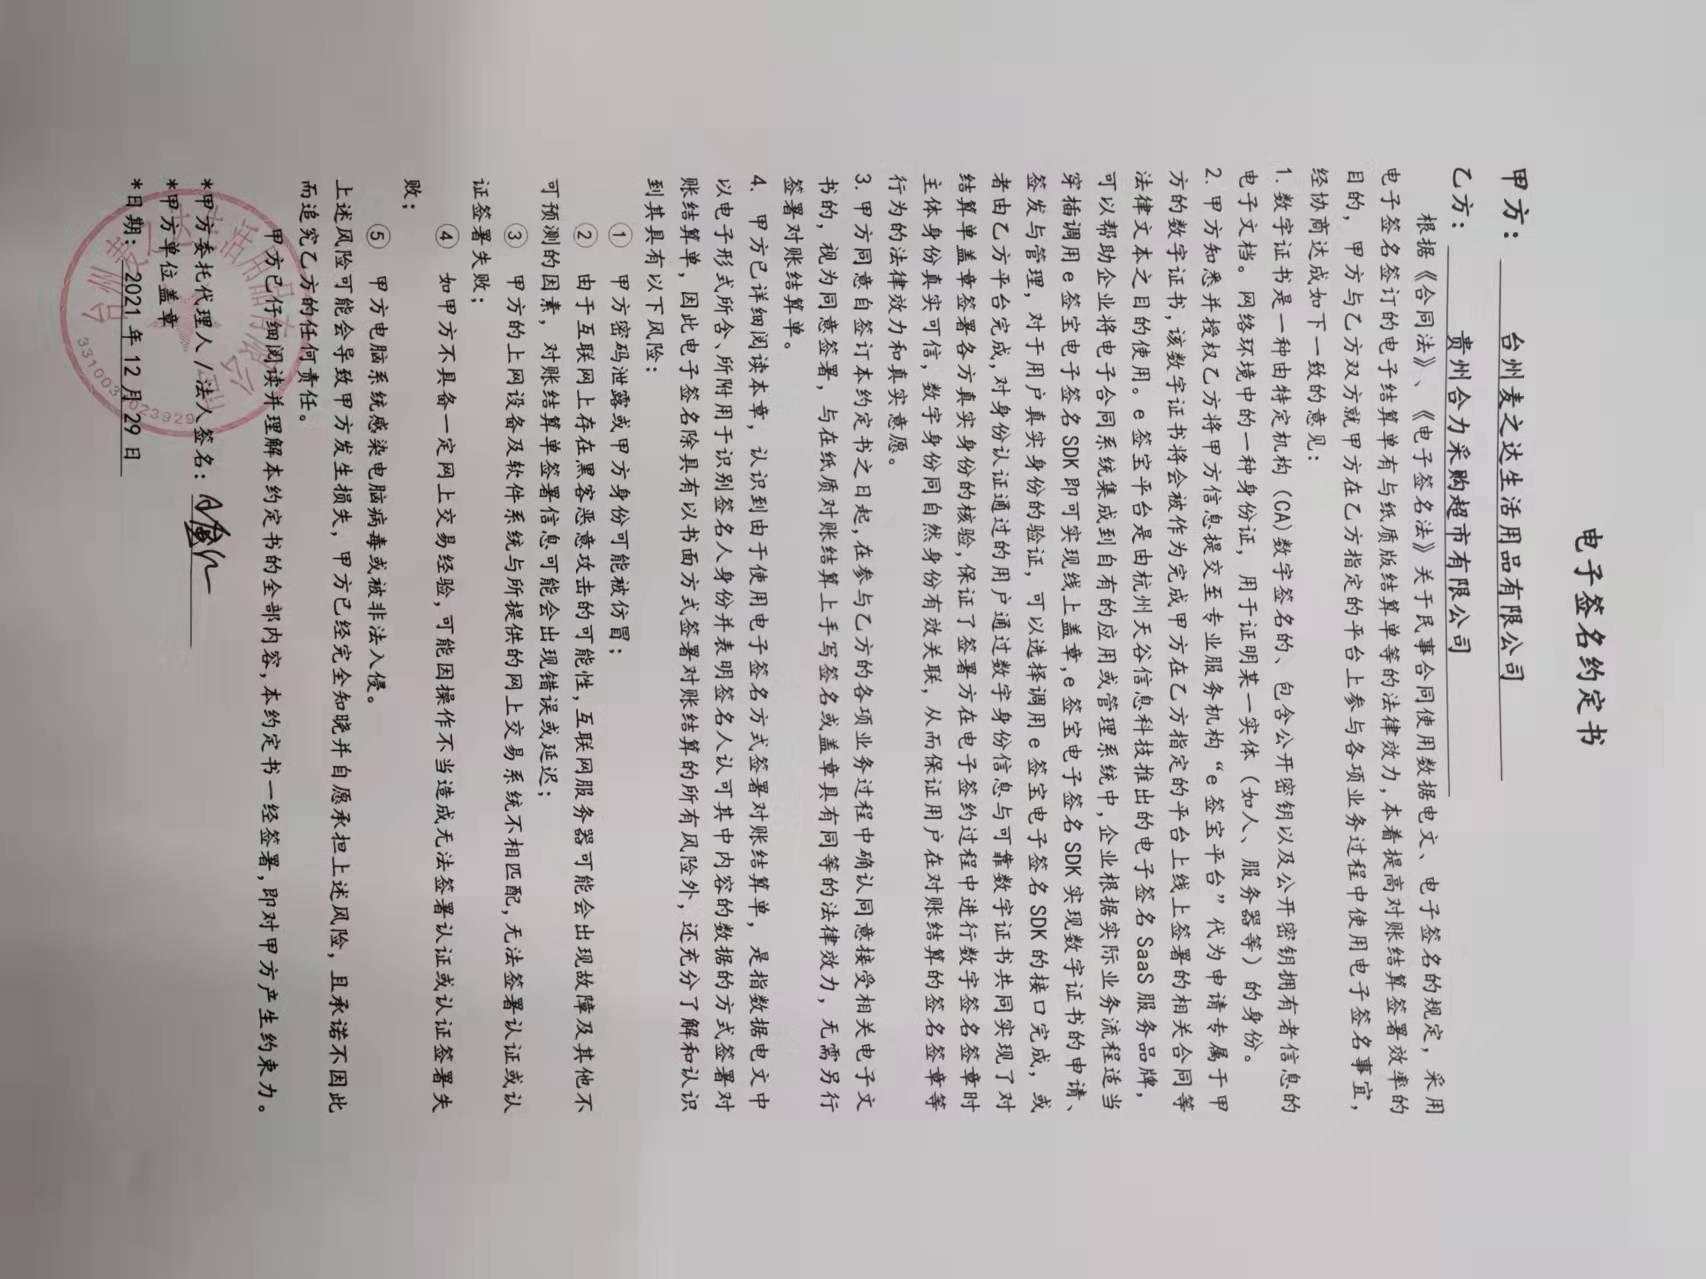 电子签名约定书
甲方： 台州麦之达生活用品有限公司
乙方： 贵州合力采购超市有限公司
根据《合同法》、《电子签名法》关于民事合同使用数据电文、电子签名的规定，采用
电子签名签订的电子结算单有与纸质版结算单等的法律效力，本着提高对账结算签署效率的
目的，甲方与乙方双方就甲方在乙方指定的平台上参与各项业务过程中使用电子签名事宜，
经协商达成如下一致的意见：
1. 数字证书是一种由特定机构（CA）数字签名的、包含公开密钥以及公开密钥拥有者信息的
电子文档。网络环境中的一种身份证，用于证明某一实体（如人、服务器等）的身份。
2. 甲方知悉并授权乙方将甲方信息提交至专业服务机构“e 签宝平台”代为申请专属于甲
方的数字证书，该数字证书将会被作为完成甲方在乙方指定的平台上线上签署的相关合同等
法律文本之目的使用。e 签宝平台是由杭州天谷信息科技推出的电子签名 SaaS 服务品牌，
可以帮助企业将电子合同系统集成到自有的应用或管理系统中，企业根据实际业务流程适当
穿插调用 e 签宝电子签名 SDK 即可实现线上盖章，e 签宝电子签名 SDK 实现数字证书的申请、
签发与管理，对于用户真实身份的验证，可以选择调用 e 签宝电子签名 SDK 的接口完成，或
者由乙方平台完成，对身份认证通过的用户通过数字身份信息与可靠数字证书共同实现了对
结算单盖章签署各方真实身份的核验，保证了签署方在电子签约过程中进行数字签名签章时
主体身份真实可信，数字身份同自然身份有效关联，从而保证用户在对账结算的签名签章等
行为的法律效力和真实意愿。
3. 甲方同意自签订本约定书之日起，在参与乙方的各项业务过程中确认同意接受相关电子文
书的，视为同意签署，与在纸质对账结算上手写签名或盖章具有同等的法律效力，无需另行
签署对账结算单。
4. 甲方已详细阅读本章，认识到由于使用电子签名方式签署对账结算单，是指数据电文中
以电子形式所含、所附用于识别签名人身份并表明签名人认可其中内容的数据的方式签署对
账结算单，因此电子签名除具有以书面方式签署对账结算的所有风险外，还充分了解和认识
到其具有以下风险：
① 甲方密码泄露或甲方身份可能被仿冒；
② 由于互联网上存在黑客恶意攻击的可能性，互联网服务器可能会出现故障及其他不
可预测的因素，对账结算单签署信息可能会出现错误或延迟；
③ 甲方的上网设备及软件系统与所提供的网上交易系统不相匹配，无法签署认证或认
证签署失败；
④ 如甲方不具备一定网上交易经验，可能因操作不当造成无法签署认证或认证签署失
败；
⑤ 甲方电脑系统感染电脑病毒或被非法入侵。
上述风险可能会导致甲方发生损失，甲方已经完全知晓并自愿承担上述风险，且承诺不因此
而追究乙方的任何责任。
甲方已仔细阅读并理解本约定书的全部内容，本约定书一经签署，即对甲方产生约束力。
*甲方委托代理人/法人签名：
*甲方单位盖章
*日期： 2021 年 12 月 29 日